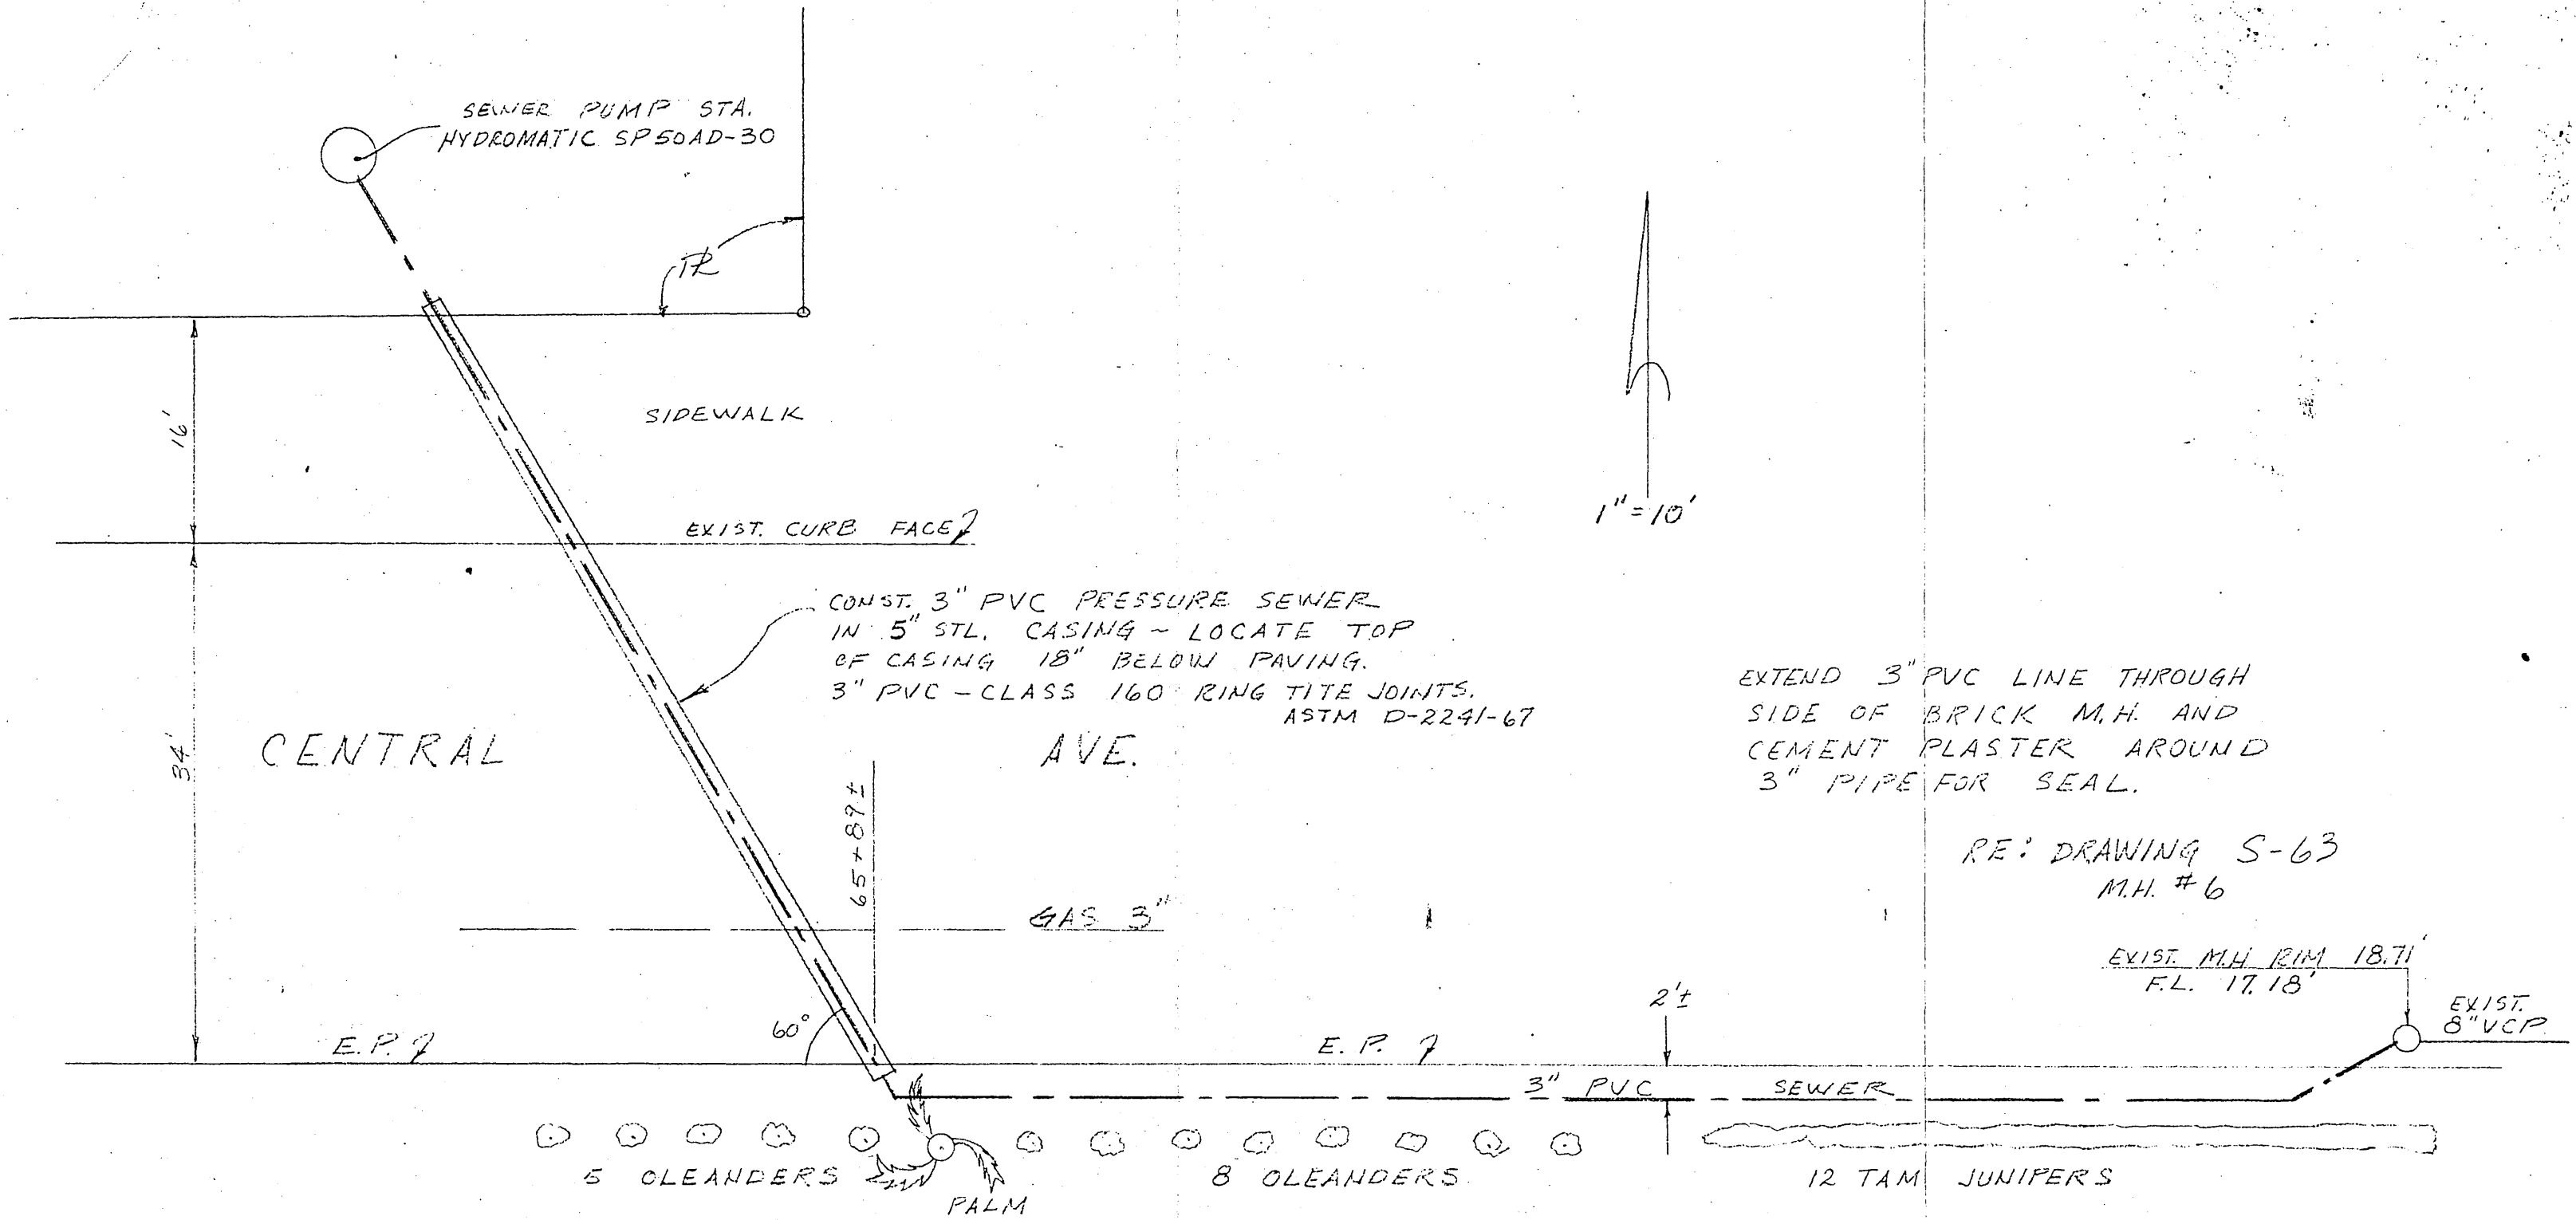 SEWER PUMP STA.
HYDROMATIC SP50AD-30
16'
SIDEWALK
EXIST. CURB FACE
1" = 10'
CONST. 3" PVC PRESSURE SEWER
IN 5" STL. CASING ~ LOCATE TOP
OF CASING 18" BELOW PAVING.
3" PVC - CLASS 160 RING TITE JOINTS.
ASTM D-2241-67
EXTEND 3" PVC LINE THROUGH
SIDE OF BRICK M.H. AND
CEMENT PLASTER AROUND
3" PIPE FOR SEAL.
34'
CENTRAL AVE.
65+89±
RE: DRAWING S-63
M.H. #6
GAS 3"
EXIST. M.H. RIM 18.71'
F.L. 17.18'
EXIST.
8" VCP
2'±
60°
E.P.
E.P.
3" PVC SEWER
5 OLEANDERS
PALM
8 OLEANDERS
12 TAM JUNIPERS